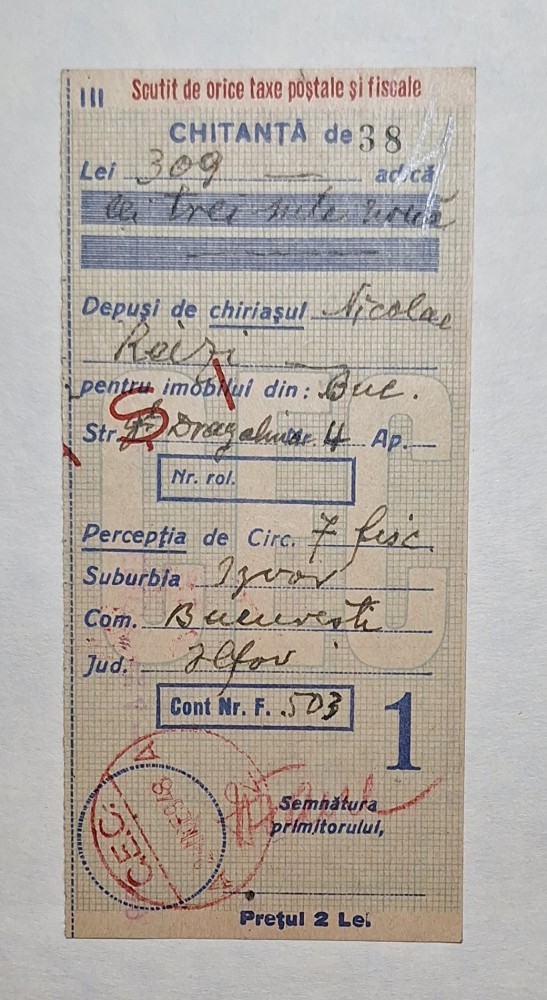 III Scutit de orice taxe poștale și fiscale
CHITANȚĂ de 38
Lei 309 — adică
lei trei sute nouă
—
Depuși de chiriașul Nicolae
Raizi —
pentru imobilul din: Buc.
Str. Dragalina Nr. 4 Ap. —
Nr. rol.
Percepția de Circ. 7 fisc
Suburbia Izvor
Com. București
Jud. Ilfov
Cont Nr. F. 503
1
C.E.C.
Semnătura
primitorului,
Prețul 2 Lei
CEC